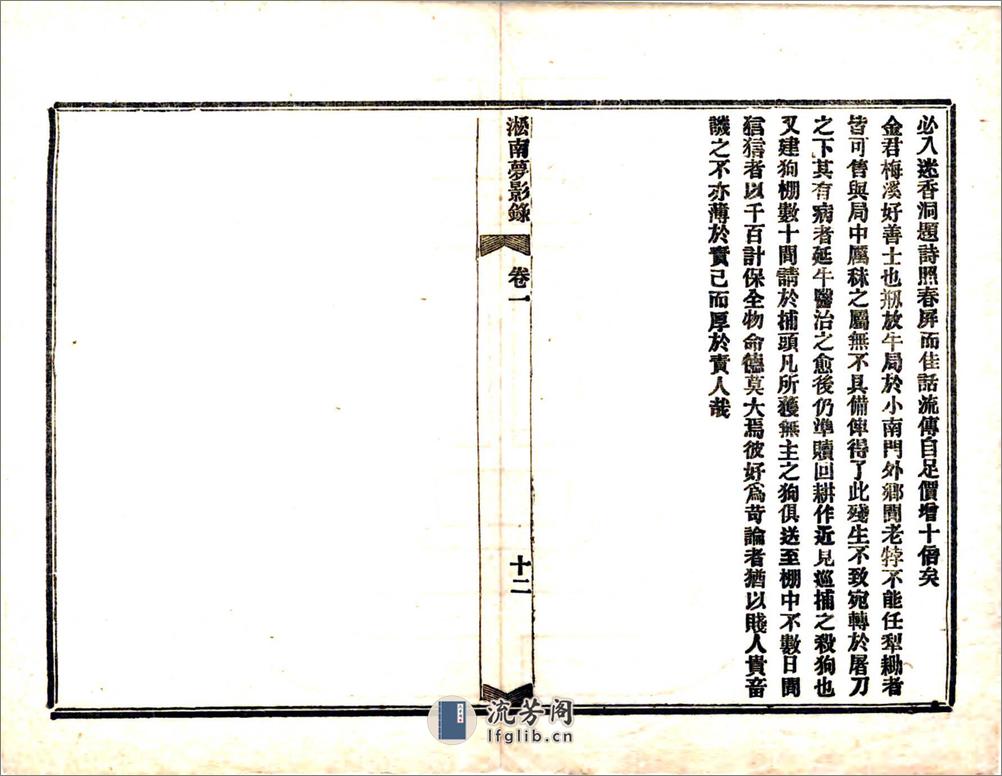 必入迷香洞題詩照春屏而佳話流傳自足價增十倍矣
金君梅溪好善士也刱放牛局於小南門外鄉間老牸不能任犁鋤者
皆可售與局中屬秣之屬無不具備俾得了此殘生不致宛轉於屠刀
之下其有病者延牛醫治之愈後仍準贖回耕作近見巡捕之殺狗也
又建狗棚數十間請於捕頭凡所獲無主之狗俱送至棚中不數日間
狺狺者以千百計保全物命德莫大焉彼好爲苛論者猶以賤人貴畜
譏之不亦薄於責己而厚於責人哉
淞南夢影錄
卷一
十二
流芳阁
lfglib.cn